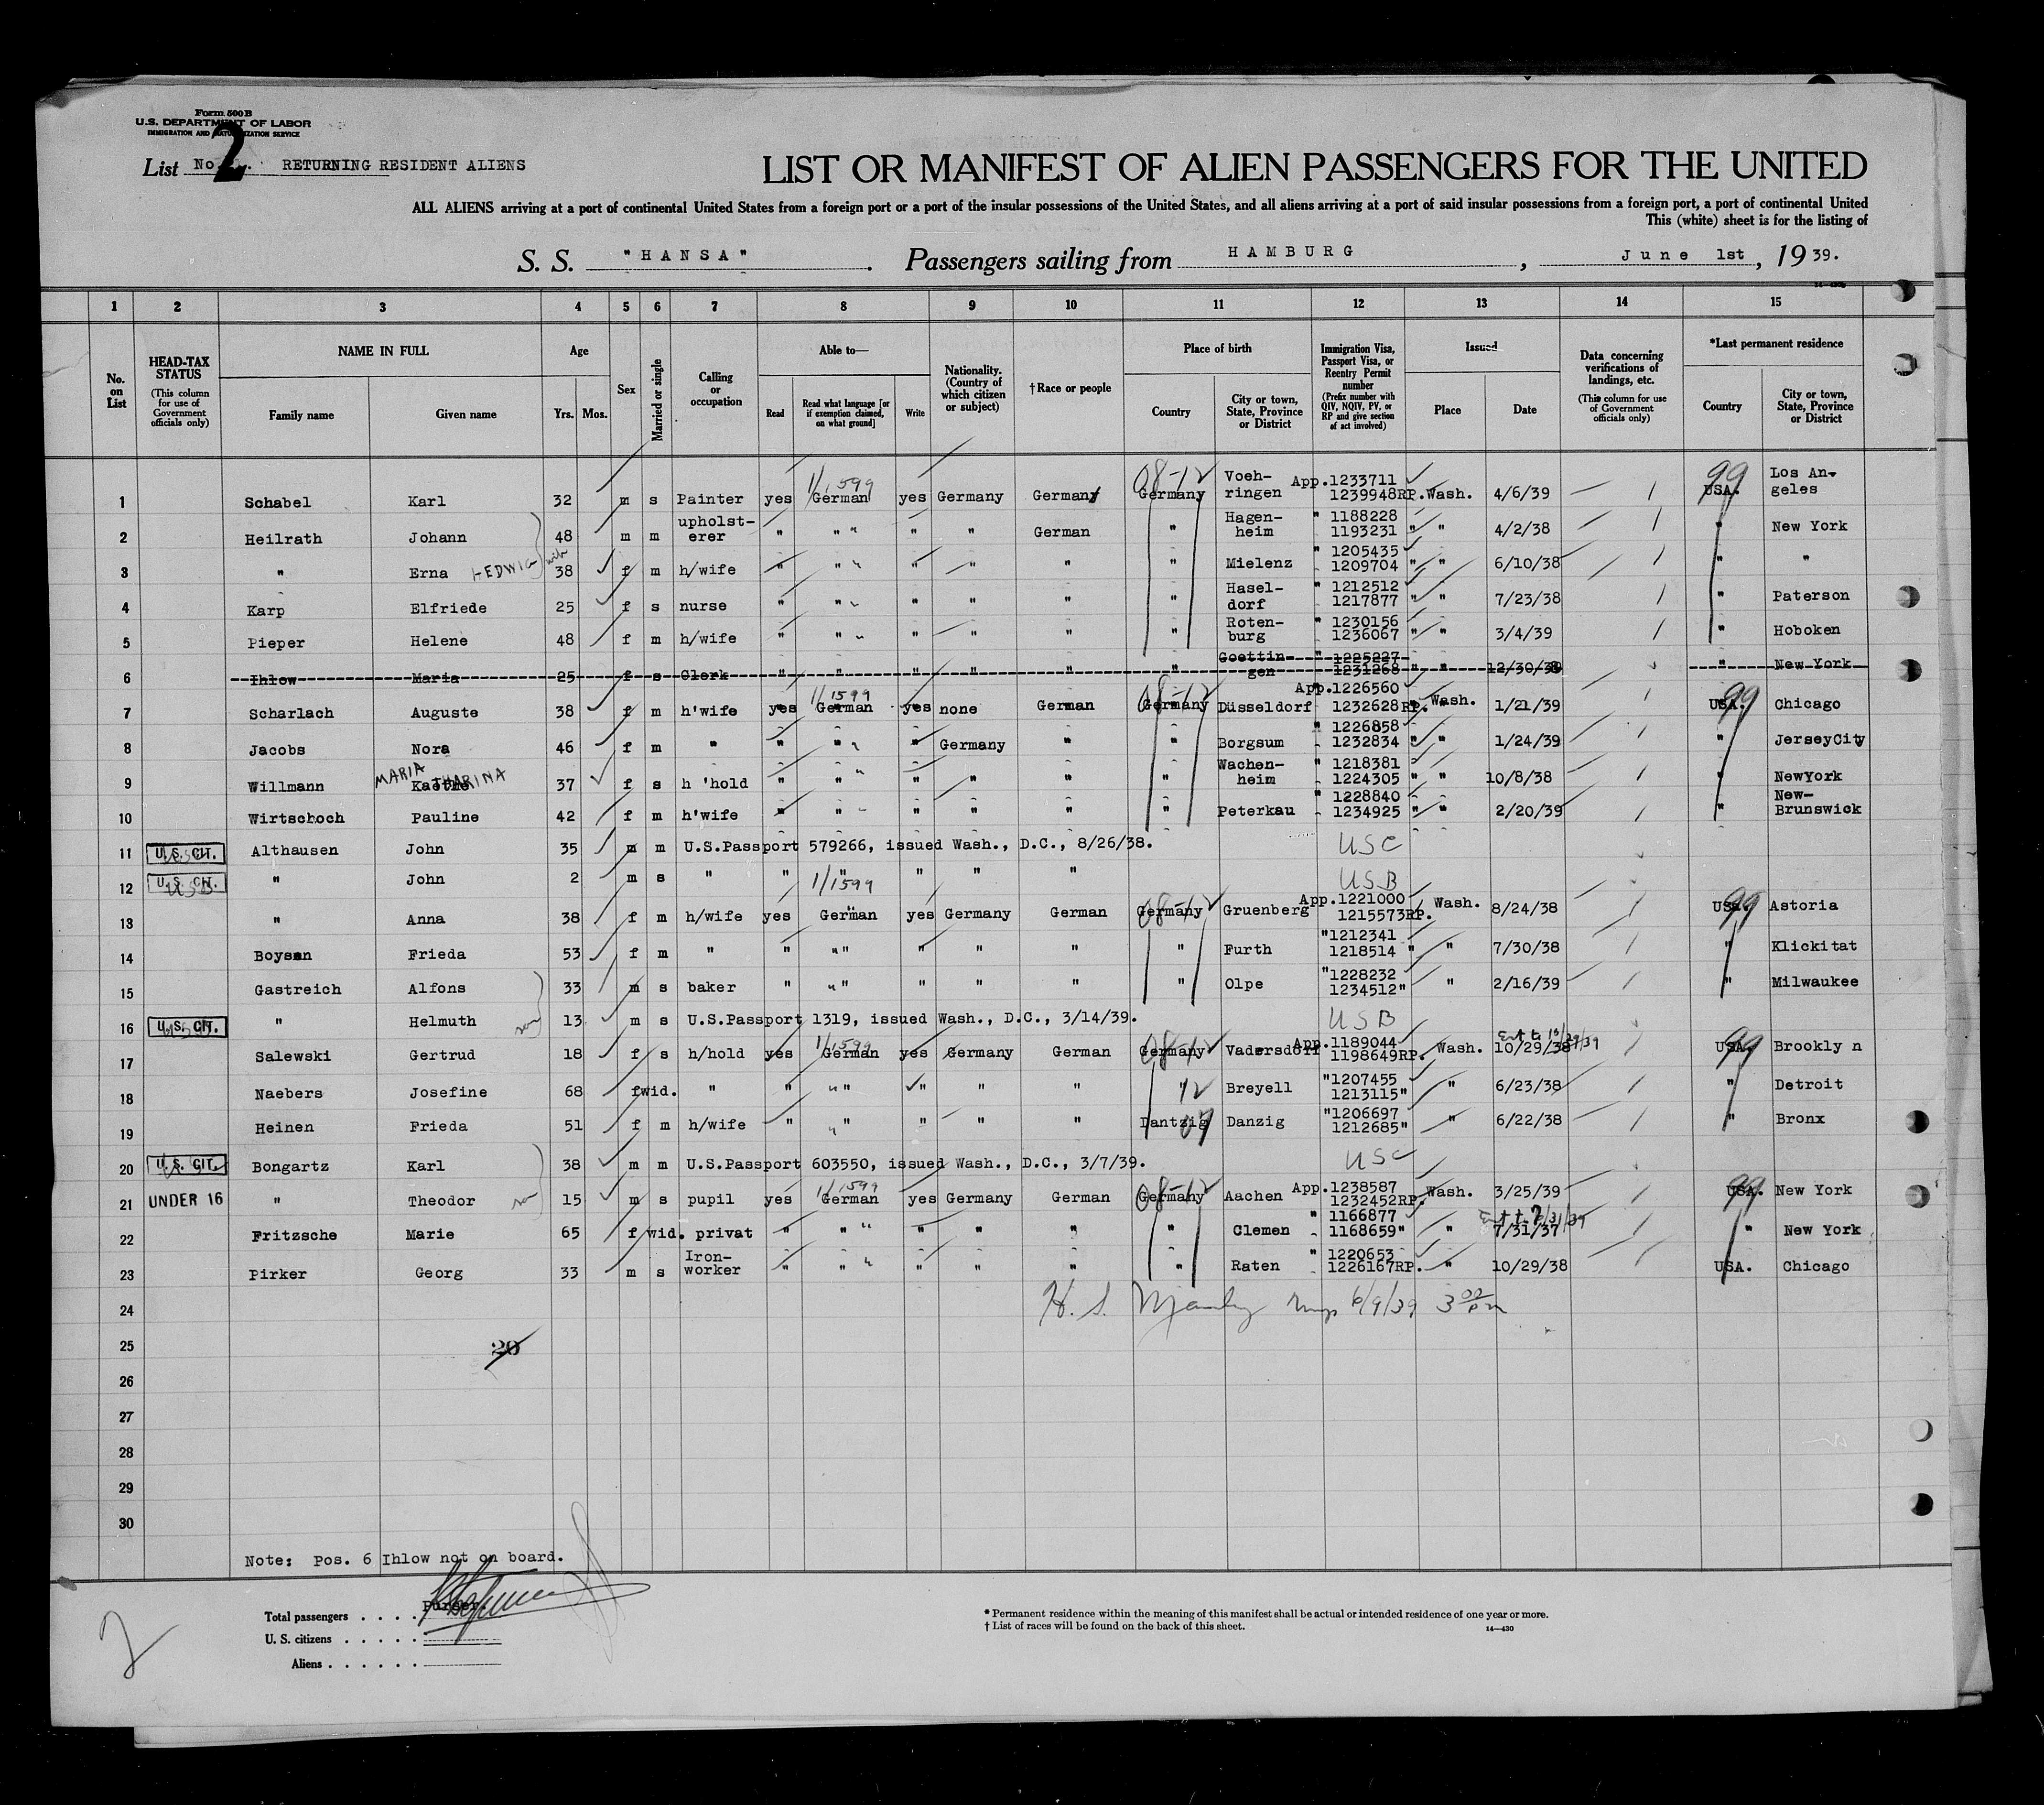 Form 500 B
U.S. DEPARTMENT OF LABOR
IMMIGRATION AND NATURALIZATION SERVICE
List No. 2 RETURNING RESIDENT ALIENS
LIST OR MANIFEST OF ALIEN PASSENGERS FOR THE UNITED
ALL ALIENS arriving at a port of continental United States from a foreign port or a port of the insular possessions of the United States, and all aliens arriving at a port of said insular possessions from a foreign port, a port of continental United
This (white) sheet is for the listing of
S. S. "HANSA". Passengers sailing from HAMBURG, June 1st, 1939.
1 2 3 4 5 6 7 8 9 10 11 12 13 14 15
No. on List
HEAD-TAX STATUS (This column for use of Government officials only)
NAME IN FULL Family name Given name
Age Yrs. Mos.
Sex
Married or single
Calling or occupation
Able to— Read Read what language [or if exemption claimed, on what ground] Write
Nationality. (Country of which citizen or subject)
†Race or people
Place of birth Country City or town, State, Province or District
Immigration Visa, Passport Visa, or Reentry Permit number (Prefix number with QIV, NQIV, PV, or RP and give section of act involved)
Issued Place Date
Data concerning verifications of landings, etc. (This column for use of Government officials only)
*Last permanent residence Country City or town, State, Province or District
1 Schabel Karl 32 m s Painter yes 1/1599 German yes Germany German 08-12 Germany Voeh-ringen App.1233711 1239948RP. Wash. 4/6/39 99 USA. Los An-geles
2 Heilrath Johann 48 m m upholst-erer " " " " German " Hagen-heim " 1188228 1193231 " " 4/2/38 " New York
3 " Erna HEDWIG wife 38 f m h/wife " " " " " " Mielenz " 1205435 1209704 " " 6/10/38 " "
4 Karp Elfriede 25 f s nurse " " " " " " Hasel-dorf " 1212512 1217877 " " 7/23/38 " Paterson
5 Pieper Helene 48 f m h/wife " " " " " " Roten-burg " 1230156 1236067 " " 3/4/39 " Hoboken
6 Ihlow Maria 25 f s Clerk " " " " " " Goettin-gen " 1225227 1231268 " " 12/30/38 " New York
7 Scharlach Auguste 38 f m h'wife yes 1/1599 German yes none German 08-12 Germany Düsseldorf App.1226560 1232628RP. Wash. 1/21/39 99 USA. Chicago
8 Jacobs Nora 46 f m " " " " Germany " " Borgsum " 1226858 1232834 " " 1/24/39 " JerseyCity
9 Willmann MARIA KATHARINA 37 f s h 'hold " " " " " " Wachen-heim " 1218381 1224305 " " 10/8/38 " NewYork
10 Wirtschoch Pauline 42 f m h'wife " " " " " " Peterkau " 1228840 1234925 " " 2/20/39 " New-Brunswick
11 U.S. CIT. Althausen John 35 m m U.S.Passport 579266, issued Wash., D.C., 8/26/38. USC
12 U.S. CIT. " John 2 m s " " " " " USB
13 " Anna 38 f m h/wife yes 1/1599 German yes Germany German 08-12 Germany Gruenberg App.1221000 1215573RP. Wash. 8/24/38 99 USA. Astoria
14 Boysen Frieda 53 f m " " " " " " " Furth "1212341 1218514 " " 7/30/38 " Klickitat
15 Gastreich Alfons 33 m s baker " " " " " " Olpe "1228232 1234512" " 2/16/39 " Milwaukee
16 U.S. CIT. " Helmuth son 13 m s U.S.Passport 1319, issued Wash., D.C., 3/14/39. USB
17 Salewski Gertrud 18 f s h/hold yes 1/1599 German yes Germany German 08-12 Germany Vadersdorf App.1189044 1198649RP. Wash. 10/29/38 99 USA. Brookly n
18 Naebers Josefine 68 f wid. " " " " " " 12 Breyell "1207455 1213115" " 6/23/38 " Detroit
19 Heinen Frieda 51 f m h/wife " " " " " Dantzig 07 Danzig "1206697 1212685" " 6/22/38 " Bronx
20 U.S. CIT. Bongartz Karl 38 m m U.S.Passport 603550, issued Wash., D.C., 3/7/39. USC
21 UNDER 16 " Theodor son 15 m s pupil yes 1/1599 German yes Germany German 08-12 Germany Aachen App.1238587 1232452RP. Wash. 3/25/39 99 USA. New York
22 Fritzsche Marie 65 f wid. privat " " " " " " Clemen " 1166877 1168659" " 7/31/37 Ext to 7/31/39 " New York
23 Pirker Georg 33 m s Iron-worker " " " " " " Raten " 1220653 1226167RP. " 10/29/38 USA. Chicago
24 H. S. 6/9/39 3 00 pm
25 20
26
27
28
29
30
Note: Pos. 6 Ihlow not on board.
Purser.
Total passengers . . . .
U. S. citizens . . . . .
Aliens . . . . . .
* Permanent residence within the meaning of this manifest shall be actual or intended residence of one year or more.
† List of races will be found on the back of this sheet.
14—430
2